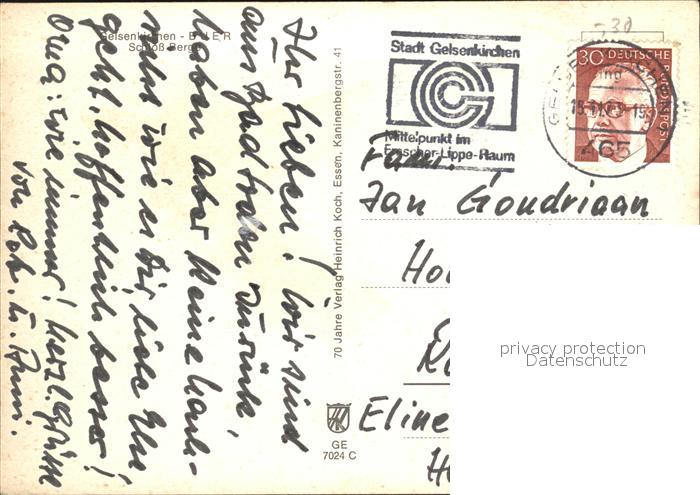 Gelsenkirchen - BUER
Schloß Berge
Ihr Lieben! Wir sind
aus Südtirol zurück,
haben aber keine Nach-
richt wie es Dir, liebe Else
geht, hoffentlich besser!
Oma: wie immer! Herzl. Grüsse
von Rob. u. Anni.
70 Jahre Verlag Heinrich Koch, Essen, Kaninenbergstr. 41
GE
7024 C
-30
Stadt Gelsenkirchen
Mittelpunkt im
Emscher-Lippe-Raum
30 DEUTSCHE BUNDESPOST
465
Fam.
Jan Goudriaan
Eline
privacy protection
Datenschutz